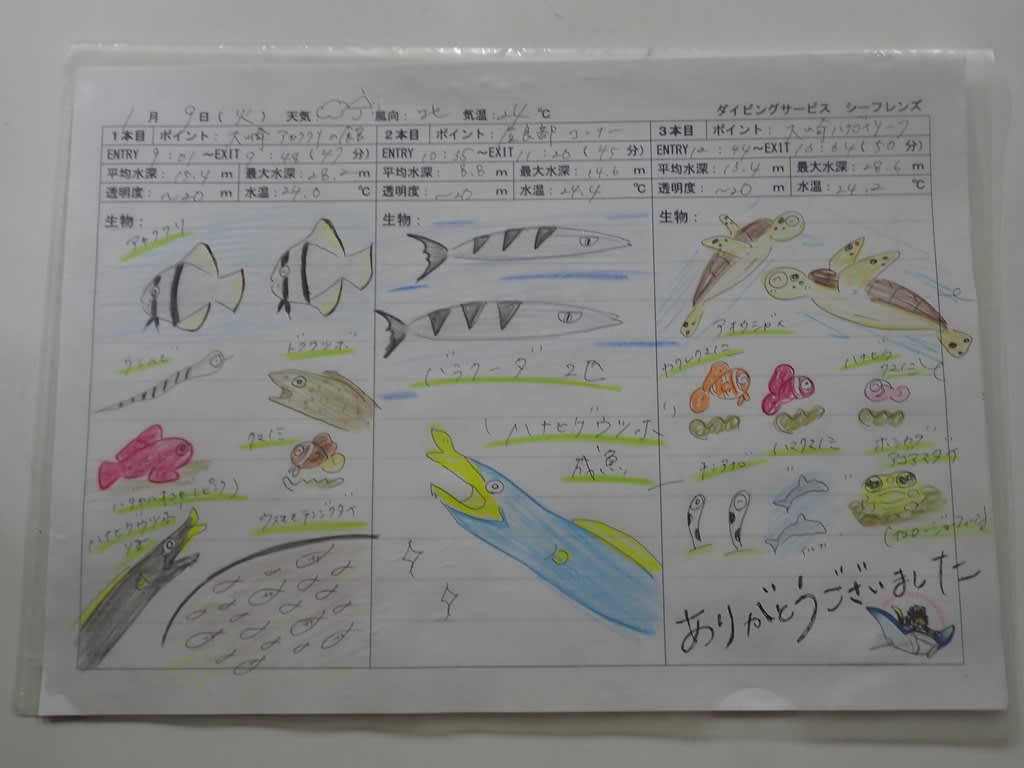 1月 9日(火) 天気 風向:北 気温:24 ℃
ダイビングサービス シーフレンズ
1本目 ポイント:大崎 アカククリの館
ENTRY 9:01 ～EXIT 9:48 (47分)
平均水深:15.4 m 最大水深:28.2 m
透明度:～20 m 水温:24.0 ℃
生物:
アカククリ
ウミヘビ
ドラウツボ
クマノミ
(ピンク)
ハナヒゲウツボ
ウスモモテンジクダイ
2本目 ポイント:屋良部コーナー
ENTRY 10:35 ～EXIT 11:20 (45分)
平均水深:8.8 m 最大水深:14.6 m
透明度:～20 m 水温:24.4 ℃
生物:
バラクーダ 2匹
ハナヒゲウツボ
成魚
3本目 ポイント:大崎ハナゴイリーフ
ENTRY 12:44 ～EXIT 13:34 (50分)
平均水深:13.4 m 最大水深:28.6 m
透明度:～20 m 水温:24.2 ℃
生物:
アオウミガメ
カクレクマノミ
ハナビラ
クマノミ
ハマクマノミ
チンアナゴ
ありがとうございました